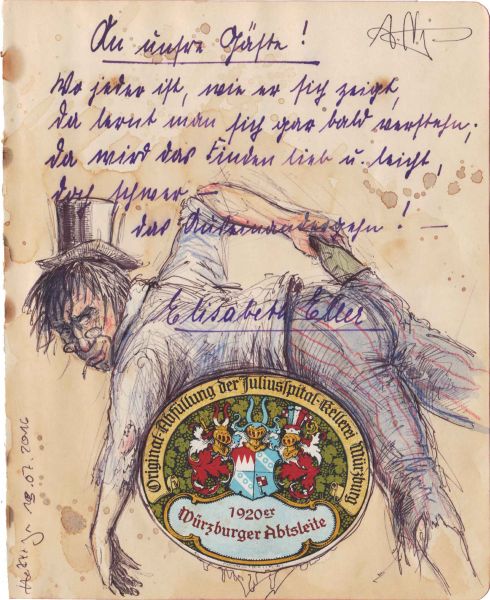 An unsre Gäste!
Wo jeder ist, wie er sich zeigt,
da lernt man sich gar bald verstehn;
da wird das Finden lieb u. leicht,
doch schwer
das Auseinandergehn! —
Elisabeth Eller
Original-Abfüllung der Juliusspital-Kellerei Würzburg
1920er
Würzburger Abtsleite
18.07.2016